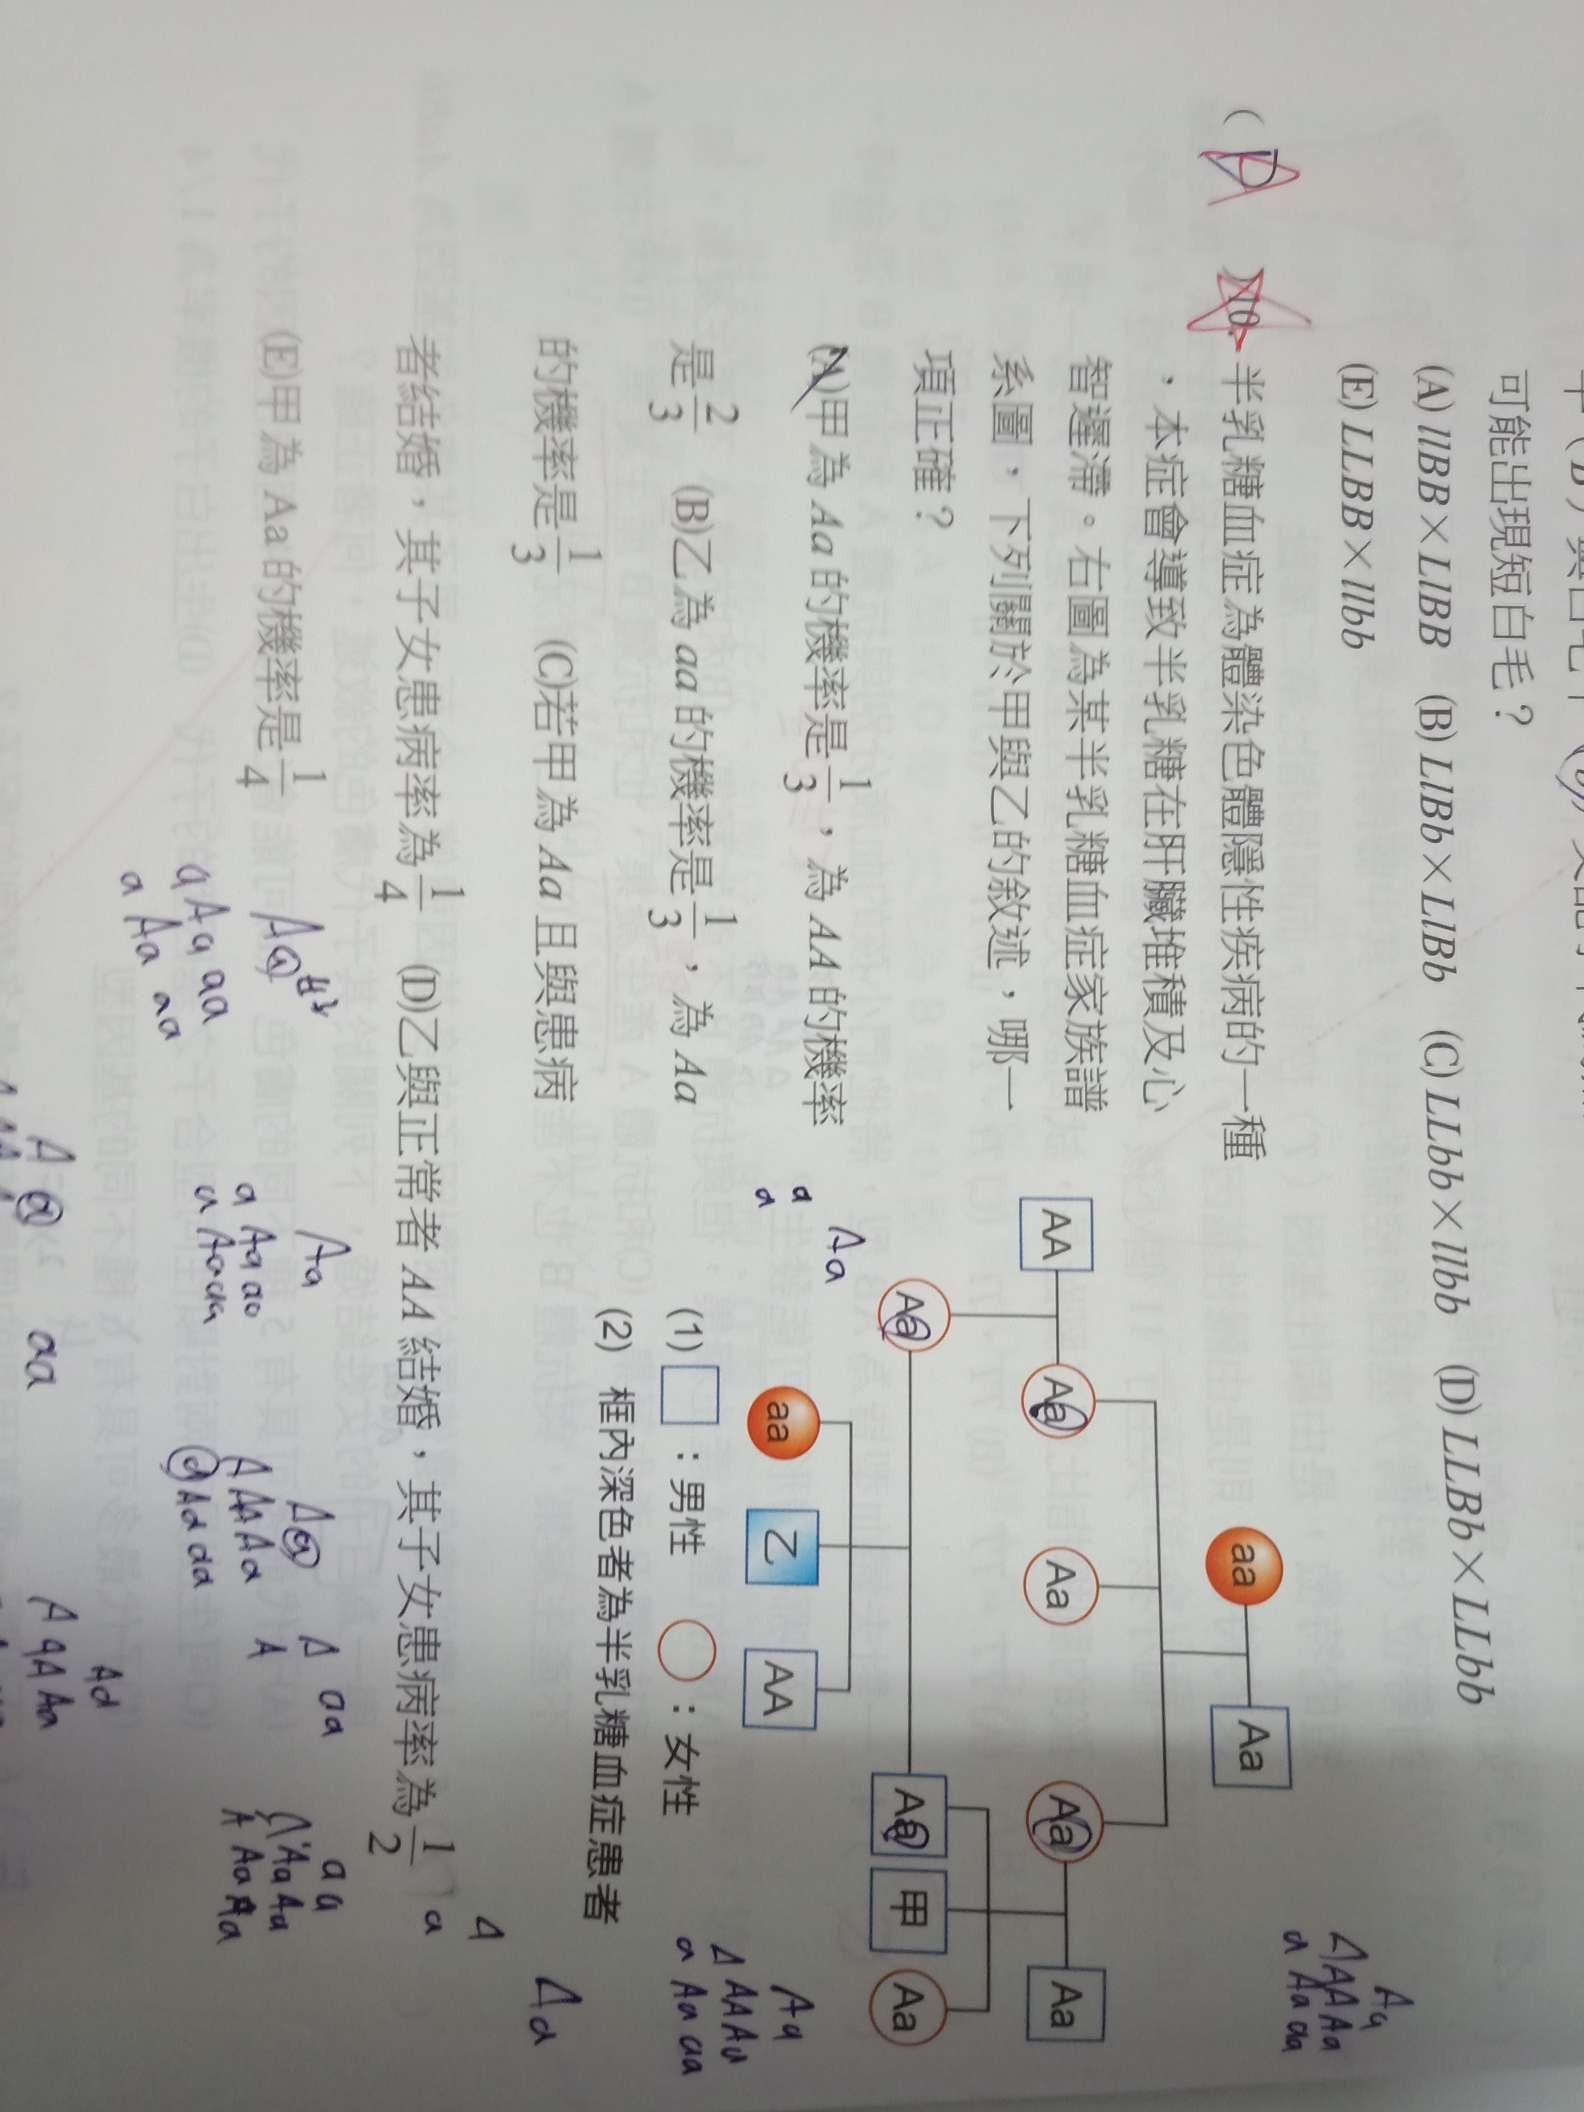 可能出現短白毛？
(A) llBB×LlBB (B) LlBb×LlBb (C) LLbb×llbb (D) LLBb×LLbb
(E) LLBB×llbb
( D )10. 半乳糖血症為體染色體隱性疾病的一種
，本症會導致半乳糖在肝臟堆積及心
智遲滯。右圖為某半乳糖血症家族譜
系圖，下列關於甲與乙的敘述，哪一
項正確？
(A)甲為 Aa 的機率是1/3，為 AA 的機率
是2/3 (B)乙為 aa 的機率是1/3，為 Aa
的機率是1/3 (C)若甲為 Aa 且與患病
者結婚，其子女患病率為1/4 (D)乙與正常者 AA 結婚，其子女患病率為1/2
(E)甲為 Aa 的機率是1/4
aa Aa
AA Aa Aa Aa Aa
Aa Aa 甲 Aa
aa 乙 AA
(1) □：男性 ○：女性
(2) 框內深色者為半乳糖血症患者
Aa
A AA Aa
a Aa aa
Aa
A AA Aa
a Aa aa
Aa
a
a
Aa
A
a
Aa
a Aa aa
a Aa aa
Aa
a Aa
a Aa aa
Aa
A AA Aa
a Aa aa
aa
A
A
aa
A Aa Aa
A Aa Aa
aa